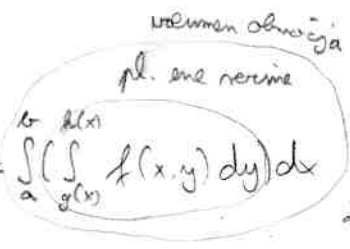 volumen območja
pl. ene rezine
= ∫_a^b ( ∫_{g(x)}^{h(x)} f(x,y) dy ) dx